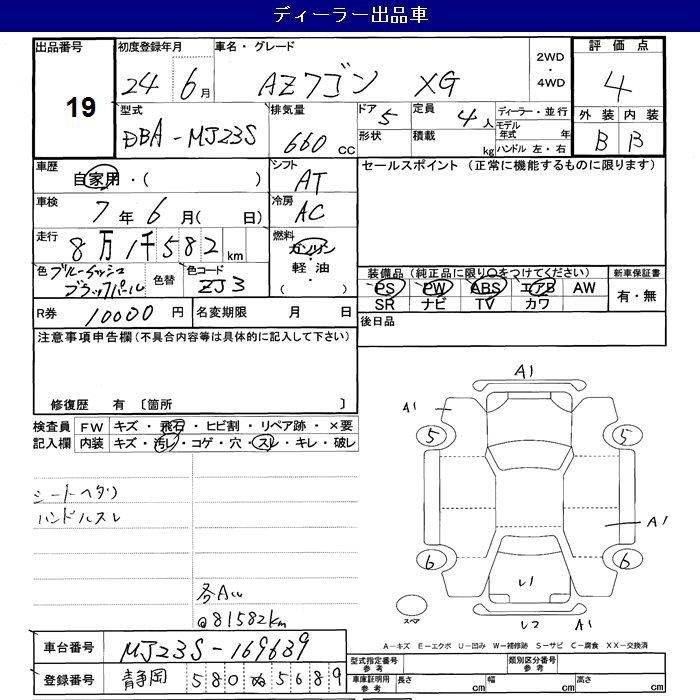 ディーラー出品車
出品番号 19
初度登録年月 24 6月
車名・グレード AZワゴン XG
2WD・4WD
評価点 4
型式 DBA-MJ23S
排気量 660 CC
ドア 5
形状
定員 4人
積載 kg
ディーラー・並行
モデル年式 年
ハンドル 左・右
外装 内装
B B
車歴 自家用・( )
シフト AT
セールスポイント(正常に機能するものに限ります)
車検 7年6月( 日)
冷房 AC
走行 8万1千582km
燃料 ガソリン・軽油・( )
色 ブルーイッシュブラックパール
色替
色コード ZJ3
装備品(純正品に限り○をつけてください)
新車保証書
PS PW ABS エアB AW
有・無
SR ナビ TV カワ
R券 10000円
名変期限 月 日
後日品
注意事項申告欄(不具合内容等は具体的に記入して下さい)
修復歴 有 〔箇所 〕
検査員記入欄
FW キズ・飛石・ヒビ割・リペア跡・×要
内装 キズ・汚レ・コゲ・穴・スレ・キレ・破レ
シートヘタリ
ハンドルスレ
各Aし
@81582km
A1
A1
5 5
A1
6 6
U1
スペア
U2 A1
A-キズ E-エクボ U-凹み W-補修跡 S-サビ C-腐食 XX-交換済
車台番号 MJ23S-169639
型式指定番号 参考
類別区分番号 参考
登録番号 静岡 580 ぬ 5689
車庫証明用 参考
長さ cm 幅 cm 高さ cm